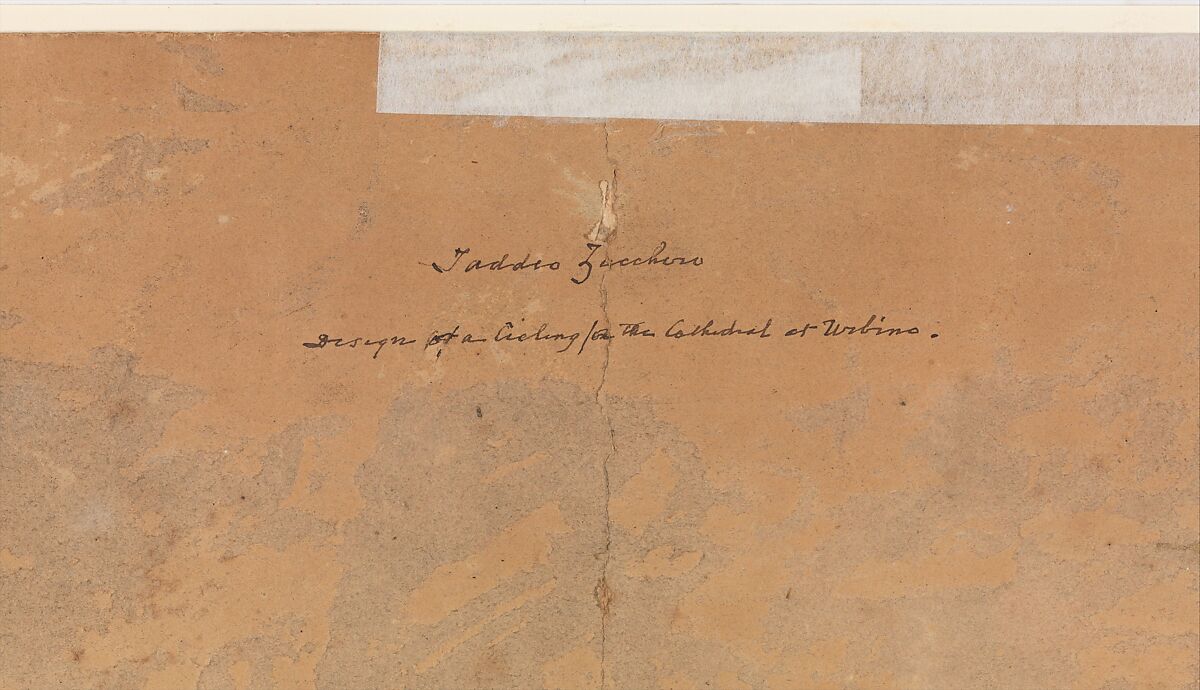 Taddeo Zucchero
Design of a Cieling for the Cathedral at Urbino.